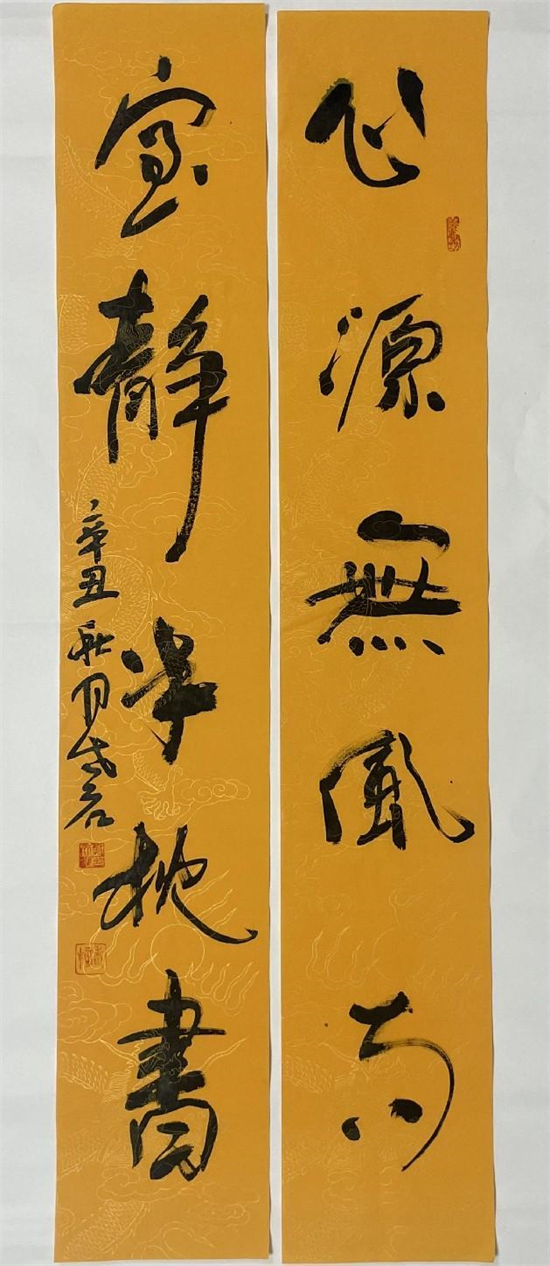 心源無風雨
室静半枕書
辛丑秋月